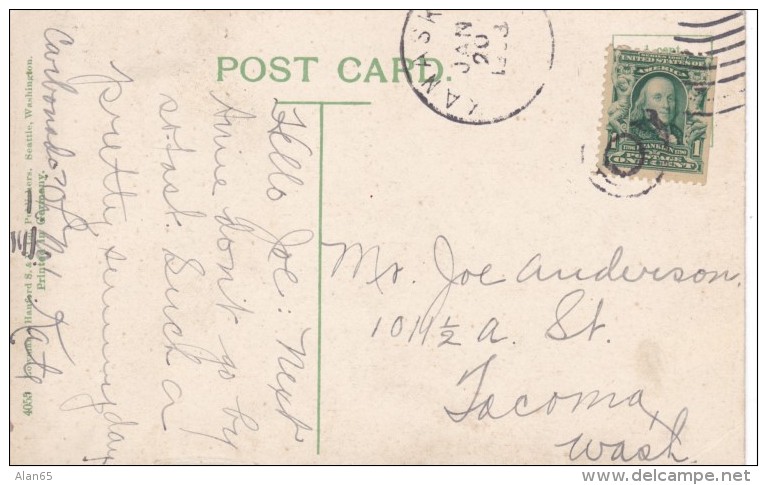 POST CARD.
JAN
20
UNITED STATES OF
AMERICA
FRANKLIN
1 1
POSTAGE
ONE CENT
Hello Joe: Next
time don't go by
so fast. Such a
pretty sunny day
Carbonado
Kate
Mr. Joe Anderson,
1011½ A. St.
Tacoma,
Wash.
4053 Hanford S. Publishers. Seattle, Washington.
Printed in Germany.
Alan65
www.delcampe.net